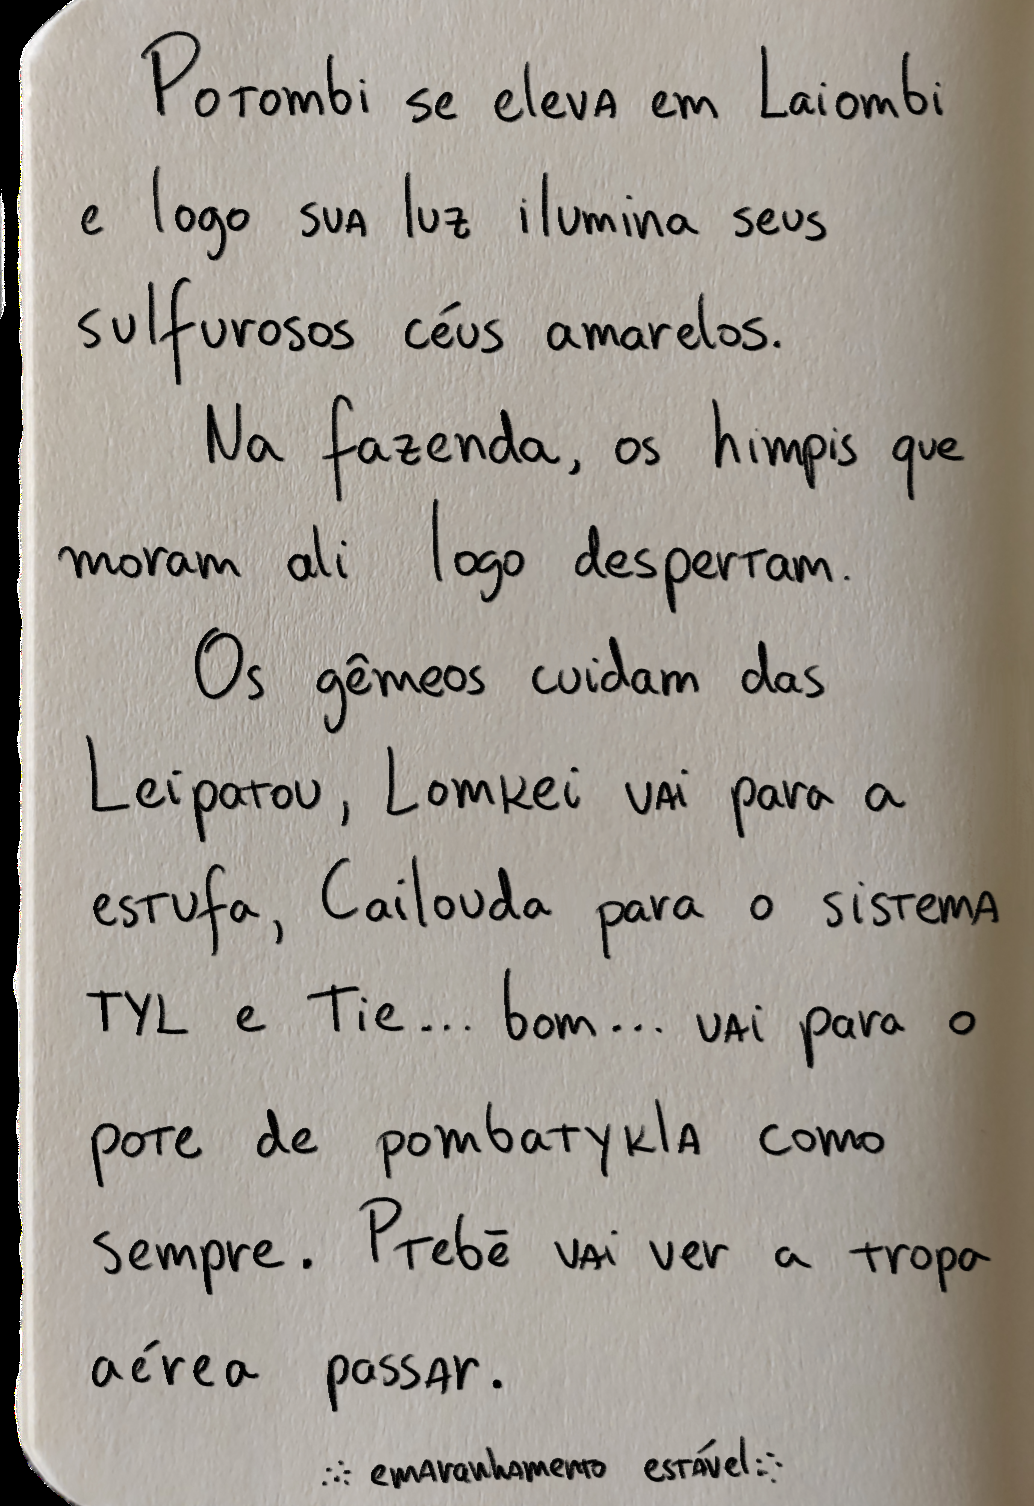 Potombi se eleva em Laiombi
e logo sua luz ilumina seus
sulfurosos céus amarelos.
Na fazenda, os himpis que
moram ali logo despertam.
Os gêmeos cuidam das
Leipatou, Lomkei vai para a
estufa, Cailouda para o sistema
TYL e Tie... bom... vai para o
pote de pombatykla como
sempre. Ptebē vai ver a tropa
aérea passar.
emaranhamento estável